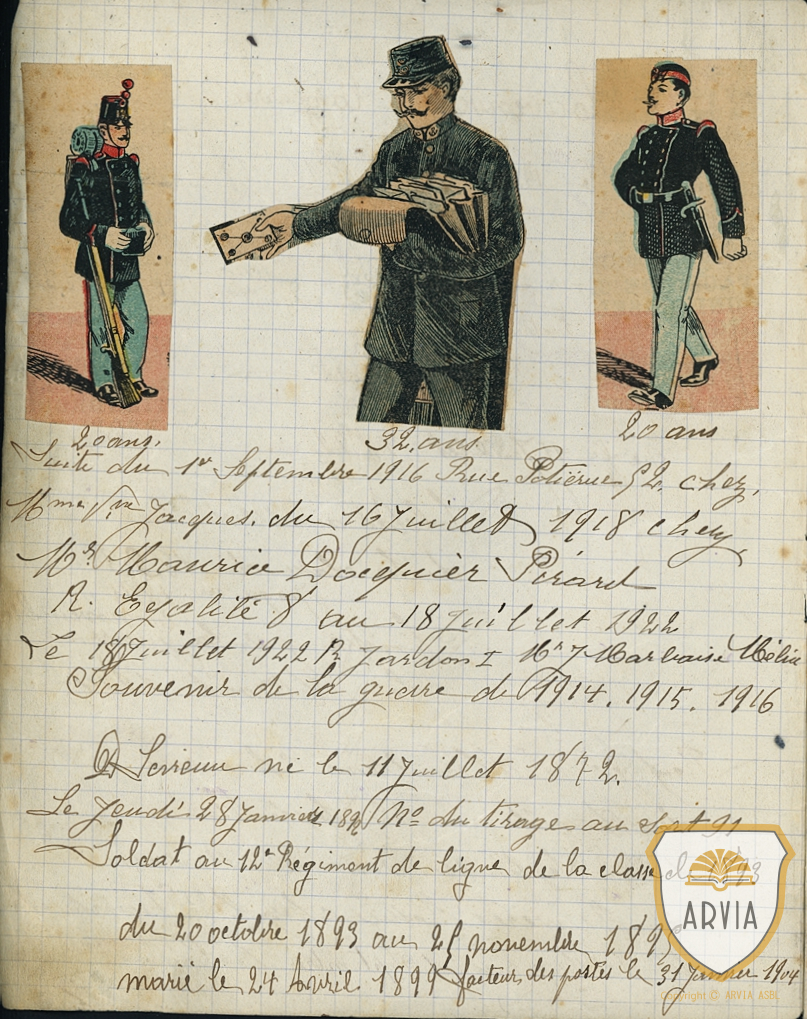 20 ans.
32. ans
20 ans
Suite du 1er Septembre 1916 Rue chez,
Mme Vve Jacques. du 16 Juillet 1918 chez
Mr Maurice Docquier Pirard
R. Egalité 8 au 18 Juillet 1922
Le 18 Juillet 1922 R Jardon I Mr J Marbaise Mélin
Souvenir de la guerre de 1914. 1915. 1916
né le 11 Juillet 1872.
Le Jeudi 28 Janvier No du tirage au sort 91
Soldat au 12e Régiment de ligne de la classe de 1893
du 20 octobre 1893 au novembre
marié le 24 Avril 1899 facteurs des postes le 31 Janvier 1904
ARVIA
Copyright © ARVIA ASBL